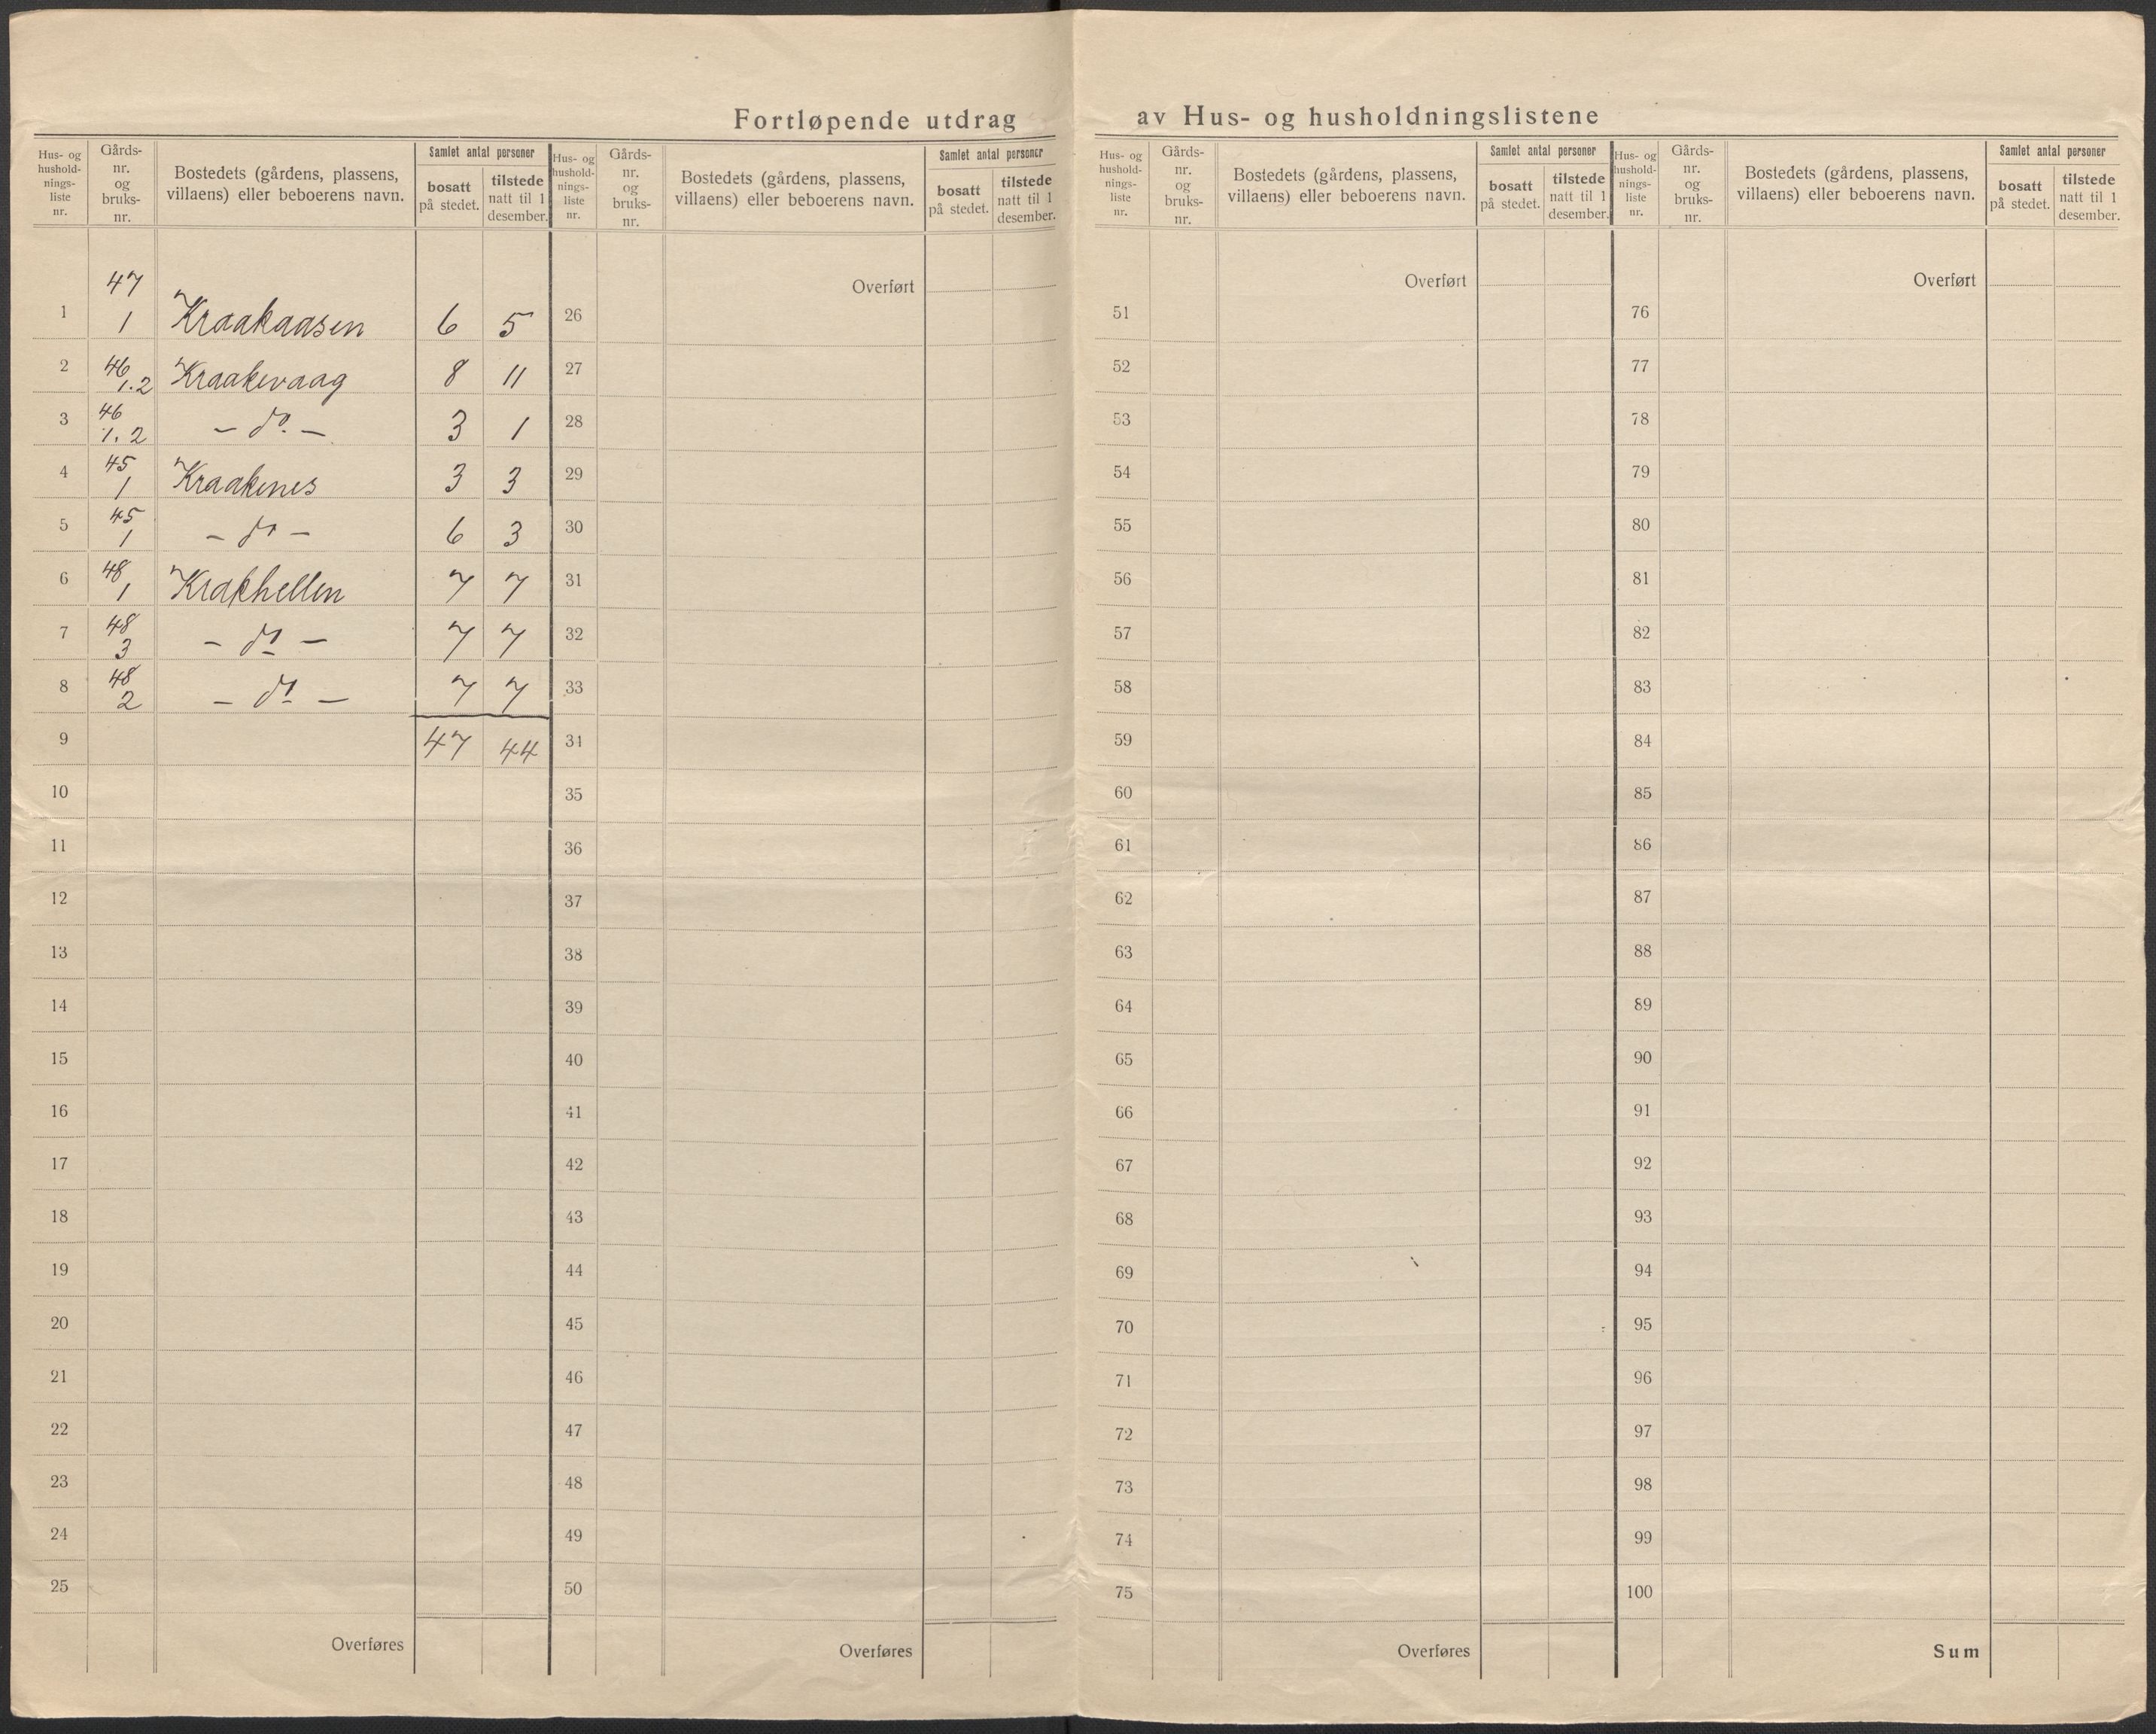 Fortløpende utdrag av Hus- og husholdningslistene
Hus- og hushold-nings-liste nr.
Gårds-nr. og bruks-nr.
Bostedets (gårdens, plassens, villaens) eller beboerens navn.
Samlet antal personer
bosatt på stedet.
tilstede natt til 1 desember.
1 47 1 Kraakaasen 6 5
2 46 1.2 Kraakevaag 8 11
3 46 1.2 - do. - 3 1
4 45 1 Kraakenes 3 3
5 45 1 - do - 6 3
6 48 1 Krakhellen 7 7
7 48 3 - do - 7 7
8 48 2 - do - 7 7
9 47 44
10
11
12
13
14
15
16
17
18
19
20
21
22
23
24
25
Overføres
Hus- og hushold-nings-liste nr.
Gårds-nr. og bruks-nr.
Bostedets (gårdens, plassens, villaens) eller beboerens navn.
Samlet antal personer
bosatt på stedet.
tilstede natt til 1 desember.
Overført
26
27
28
29
30
31
32
33
31
35
36
37
38
39
40
41
42
43
44
45
46
47
48
49
50
Overføres
Hus- og hushold-nings-liste nr.
Gårds-nr. og bruks-nr.
Bostedets (gårdens, plassens, villaens) eller beboerens navn.
Samlet antal personer
bosatt på stedet.
tilstede natt til 1 desember.
Overført
51
52
53
54
55
56
57
58
59
60
61
62
63
64
65
66
67
68
69
70
71
72
73
74
75
Overføres
Hus- og hushold-nings-liste nr.
Gårds-nr. og bruks-nr.
Bostedets (gårdens, plassens, villaens) eller beboerens navn.
Samlet antal personer
bosatt på stedet.
tilstede natt til 1 desember.
Overført
76
77
78
79
80
81
82
83
84
85
86
87
88
89
90
91
92
93
94
95
96
97
98
99
100
Sum